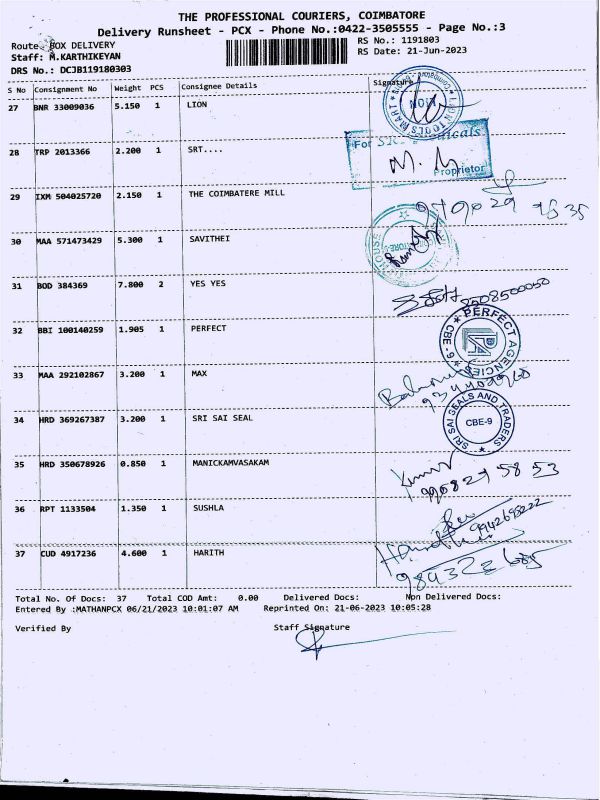 THE PROFESSIONAL COURIERS, COIMBATORE
Delivery Runsheet - PCX - Phone No.:0422-3505555 - Page No.:3
Route: BOX DELIVERY
RS No.: 1191803
Staff: M.KARTHIKEYAN
RS Date: 21-Jun-2023
DRS No.: DCJB119180303
S No Consignment No Weight PCS Consignee Details Signature
27 BNR 33009036 5.150 1 LION
LION TOOLS MART
28 TRP 2013366 2.200 1 SRT....
For
Proprietor
29 IXM 504025720 2.150 1 THE COIMBATERE MILL
30 MAA 571473429 5.300 1 SAVITHEI
31 BOD 384369 7.800 2 YES YES
32 BBI 100140259 1.905 1 PERFECT
PERFECT AGENCIES CBE - 6
33 MAA 292102867 3.200 1 MAX
34 HRD 369267387 3.200 1 SRI SAI SEAL
SRI SAI SEALS AND TRADERS
CBE-9
35 HRD 350678926 0.850 1 MANICKAMVASAKAM
Kumar
990829 58 53
36 RPT 1133504 1.350 1 SUSHLA
37 CUD 4917236 4.600 1 HARITH
Total No. Of Docs: 37 Total COD Amt: 0.00 Delivered Docs: Non Delivered Docs:
Entered By :MATHANPCX 06/21/2023 10:01:07 AM Reprinted On: 21-06-2023 10:05:28
Verified By Staff Signature